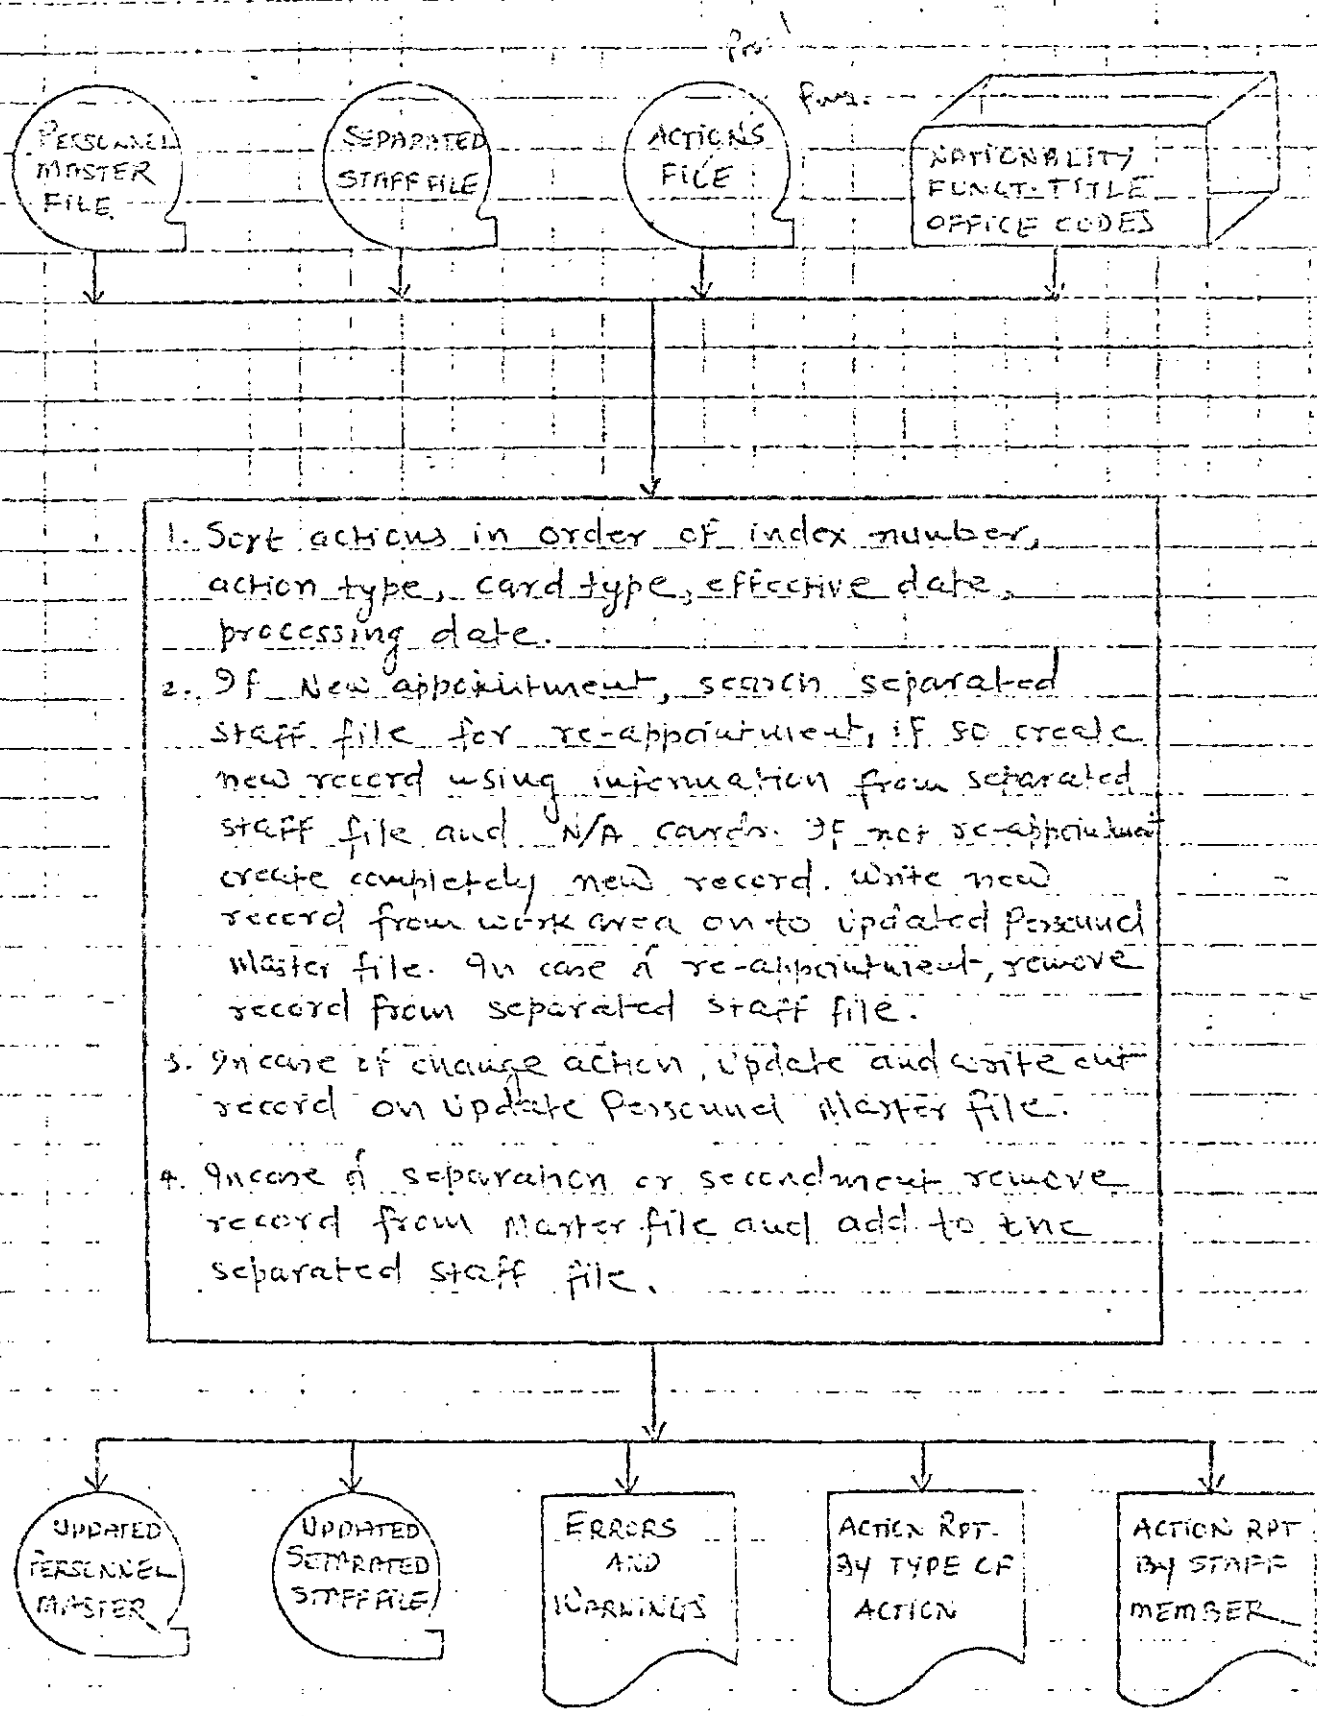 PERSONNEL
MASTER
FILE
SEPARATED
STAFF FILE
ACTIONS
FILE
NATIONALITY
FUNCT. TITLE
OFFICE CODES
1. Sort actions in order of index number,
action type, card type, effective date,
processing date.
2. If New appointment, search separated
staff file for re-appointment, if so create
new record using information from separated
staff file and N/A cards. If not re-appointment
create completely new record. Write new
record from work area on to updated Personnel
Master file. In case of re-appointment, remove
record from separated staff file.
3. In case of change action, update and write out
record on update Personnel Master file.
4. In case of separation or secondment remove
record from Master file and add to the
separated staff file.
UPDATED
PERSONNEL
MASTER
UPDATED
SEPARATED
STAFF FILE
ERRORS
AND
WARNINGS
ACTION RPT.
BY TYPE OF
ACTION
ACTION RPT
BY STAFF
MEMBER